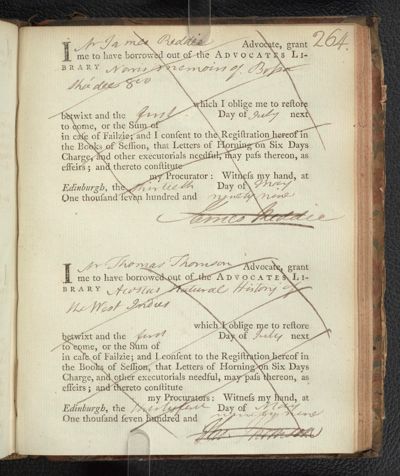 264.
I Mr James Reddie Advocate, grant
me to have borrowed out of the ADVOCATES LI-
BRARY Norris memoirs of Bossa
Ahadee 8vo
which I oblige me to restore
betwixt and the first Day of July next
to come, or the Sum of
in case of Failzie; and I consent to the Registration hereof in
the Books of Session, that Letters of Horning on Six Days
Charge, and other executorials needful, may pass thereon, as
effeirs; and thereto constitute
my Procurator: Witness my hand, at
Edinburgh, the thirtieth Day of May
One thousand seven hundred and ninety nine
James Reddie
I Mr Thomas Thomson Advocate, grant
me to have borrowed out of the ADVOCATES LI-
BRARY Natural History of
the West Indies
which I oblige me to restore
betwixt and the first Day of July next
to come, or the Sum of
in case of Failzie; and I consent to the Registration hereof in
the Books of Session, that Letters of Horning on Six Days
Charge, and other executorials needful, may pass thereon, as
effeirs; and thereto constitute
my Procurators: Witness my hand, at
Edinburgh, the Day of May
One thousand seven hundred and ninety nine
Thos Thomson